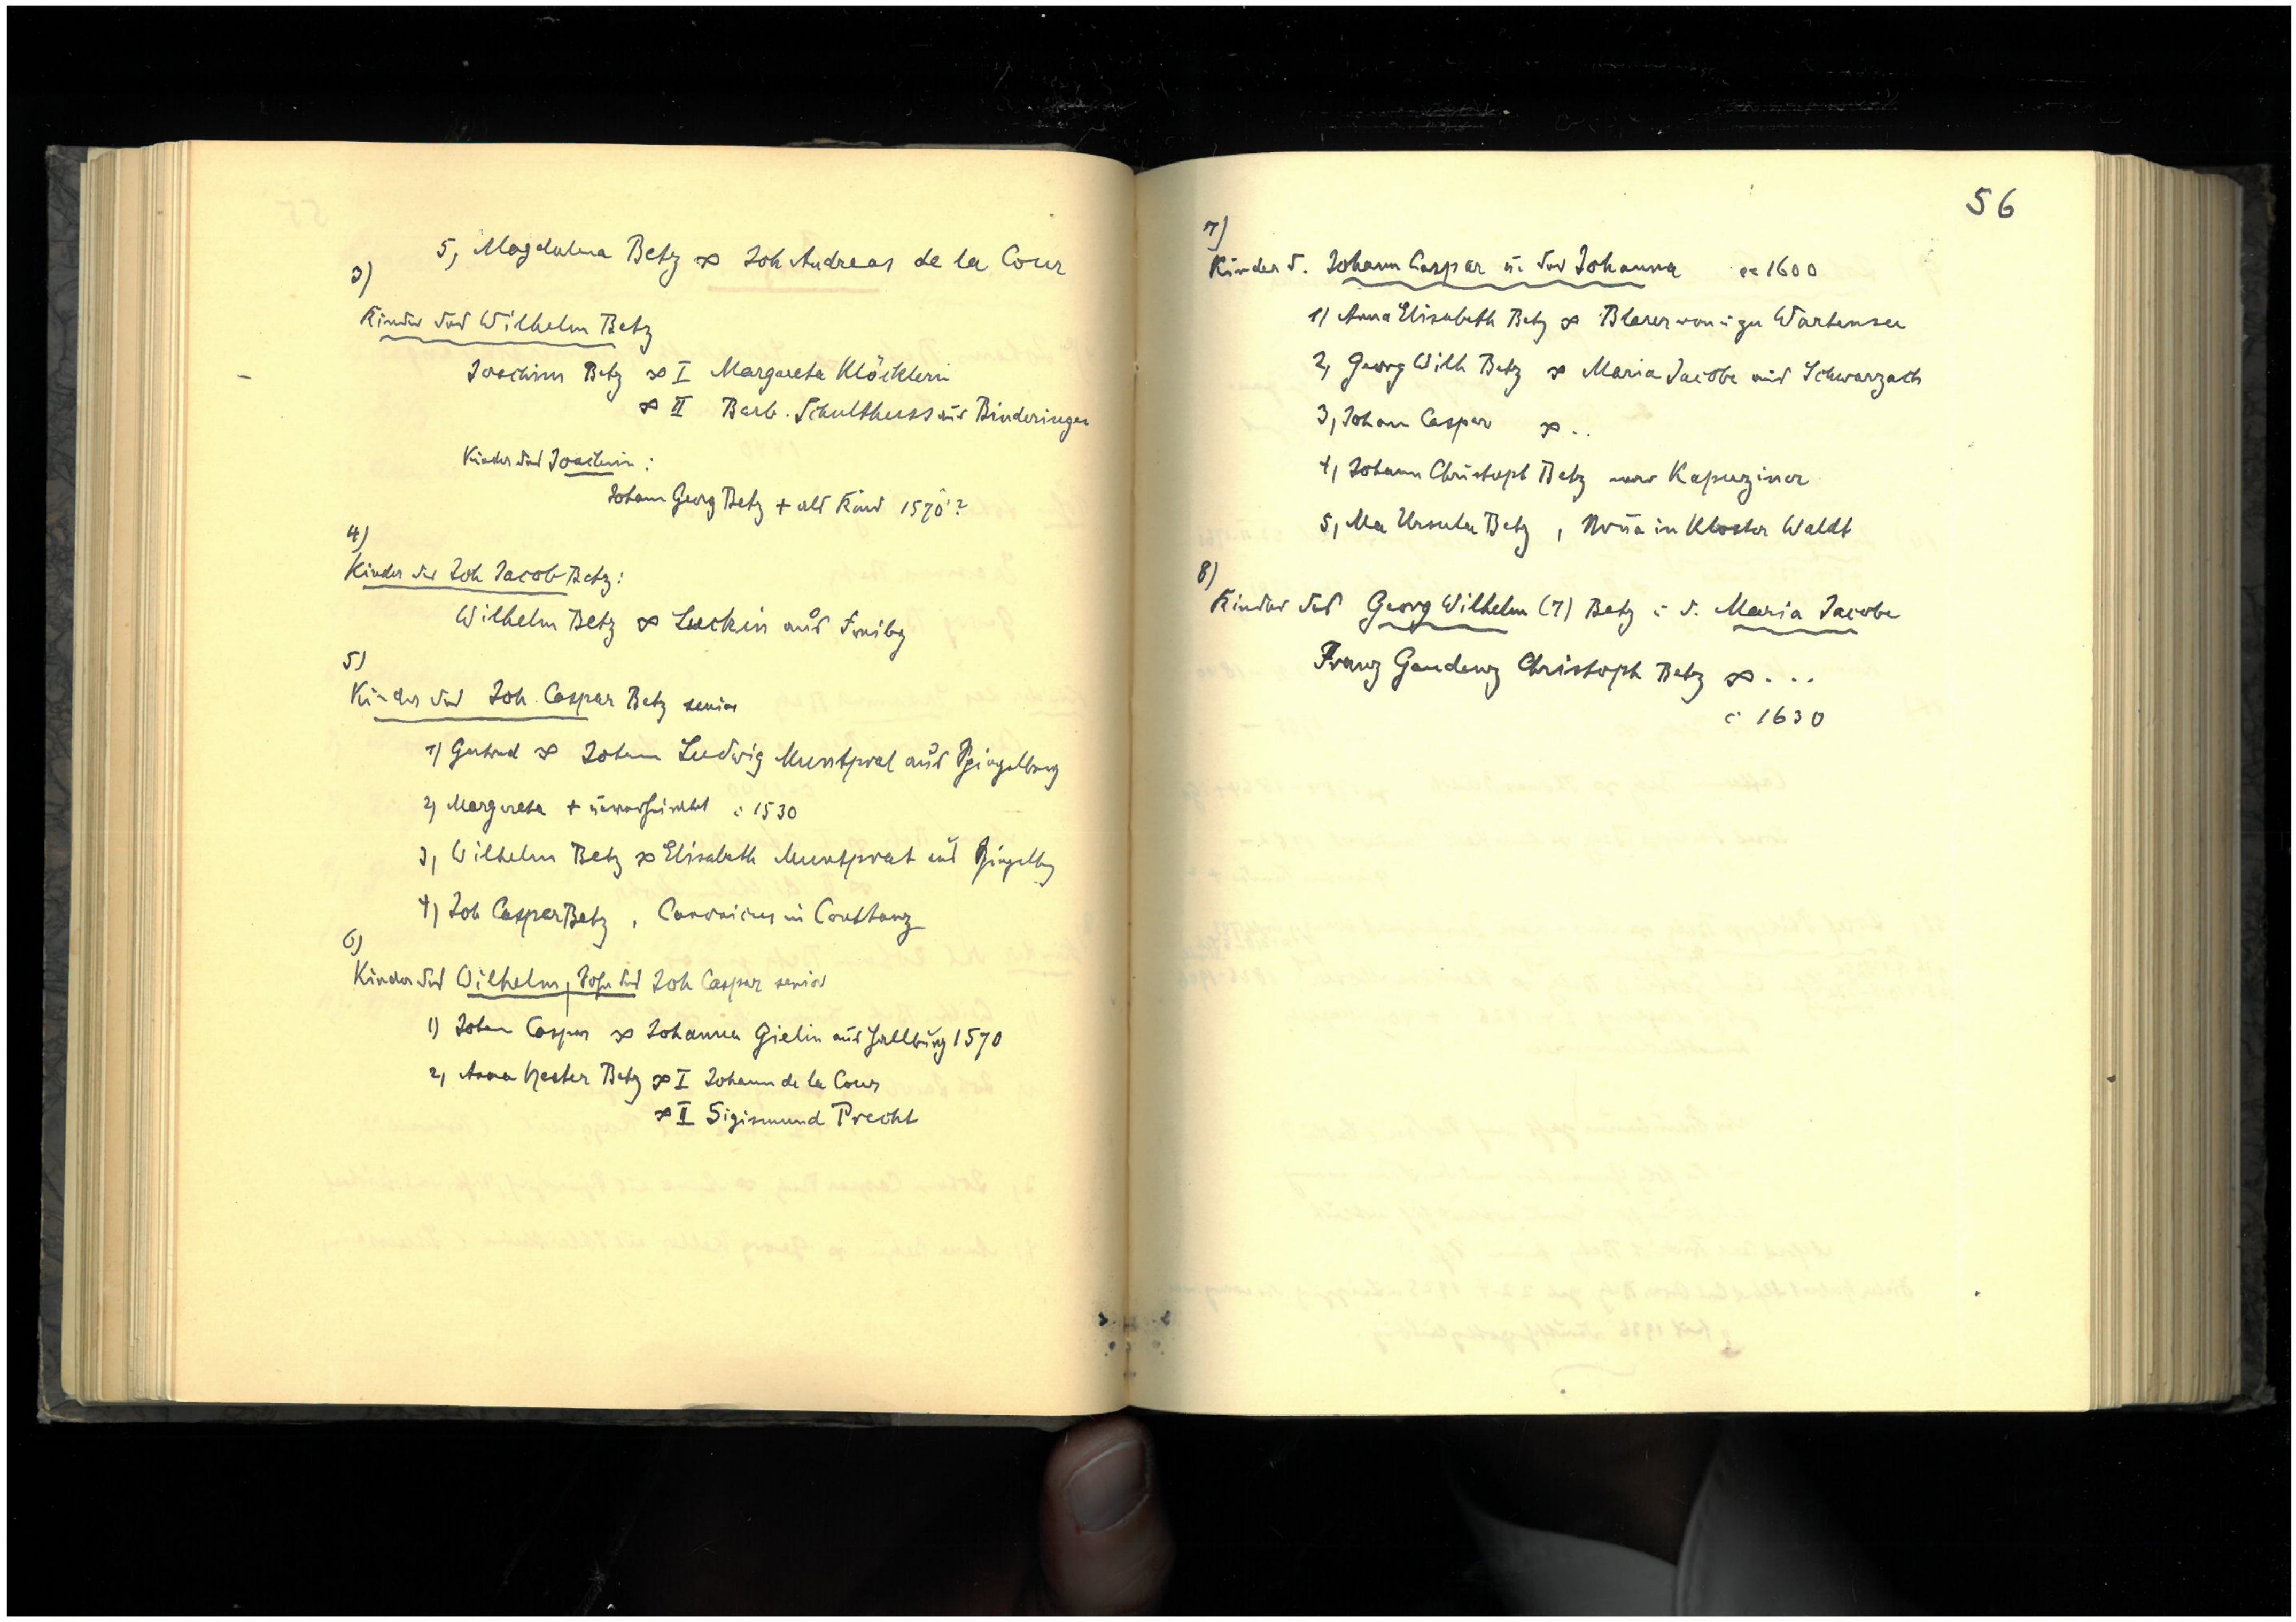 5, Magdalena Betz ∞ Joh Andreas de la Cour
3)
Kinder des Wilhelm Betz
Joachim Betz ∞ I Margareta Klöcklerin
∞ II Barb. Schulthess aus Binderingen
Kinder des Joachim :
Johann Georg Betz + als Kind 1570 ?
4)
Kinder des Joh Jacob Betz :
Wilhelm Betz ∞ Luckin aus Freibg
5)
Kinder des Joh. Caspar Betz senior
1) Gertrud ∞ Johann Ludwig Muntprat aus Spiegelberg
2) Margareta + unverheiratet c 1530
3, Wilhelm Betz ∞ Elisabeth Muntprat aus Spiegelbg
4) Joh Casper Betz , Canonicus in Constanz
6)
Kinder des Wilhelm, Sohn des Joh Caspar senior
1) Johan Caspar ∞ Johanna Gielin aus 1570
2, Anna Hester Betz ∞ I Johann de la Cour
∞ II Sigismund Precht
56
7)
Kinder d. Johann Caspar u. der Johanna ca 1600
1) Anna Elisabeth Betz ∞ Blarer von u zu Wartensee
2, Georg Wilh Betz ∞ Maria Jacobe aus Schwarzach
3, Johan Caspar ∞ . .
4, Johann Christoph Betz war Kapuziner
5, Ma Ursula Betz , Noña in Kloster Waldt
8)
Kinder des Georg Wilhelm (7) Betz u d. Maria Jacobe
Franz Gaudenz Christoph Betz ∞ . . .
c 1630